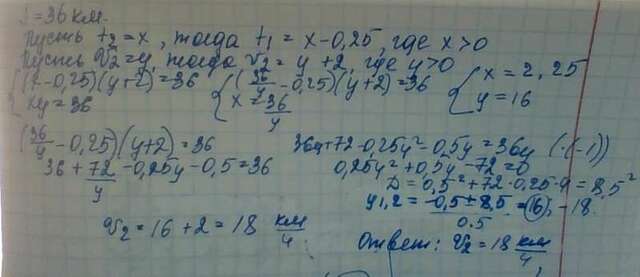 S = 36 км.
Пусть t₂ = x, тогда t₁ = x - 0,25, где x > 0
Пусть V₂ = y, тогда V₂ = y + 2, где y > 0
{ (x - 0,25)(y + 2) = 36 { (36/y - 0,25)(y + 2) = 36 { x = 2,25
xy = 36 x = 36/y y = 16
(36/y - 0,25)(y + 2) = 36 36y + 72 - 0,25y² - 0,5y = 36y (·(-1))
36 + 72/y - 0,25y - 0,5 = 36 0,25y² + 0,5y - 72 = 0
D = 0,5² + 72·0,25·4 = 8,5²
y₁,₂ = (-0,5 ± 8,5)/0.5 = 16, -18.
V₂ = 16 + 2 = 18 км/ч
Ответ: V₂ = 18 км/ч